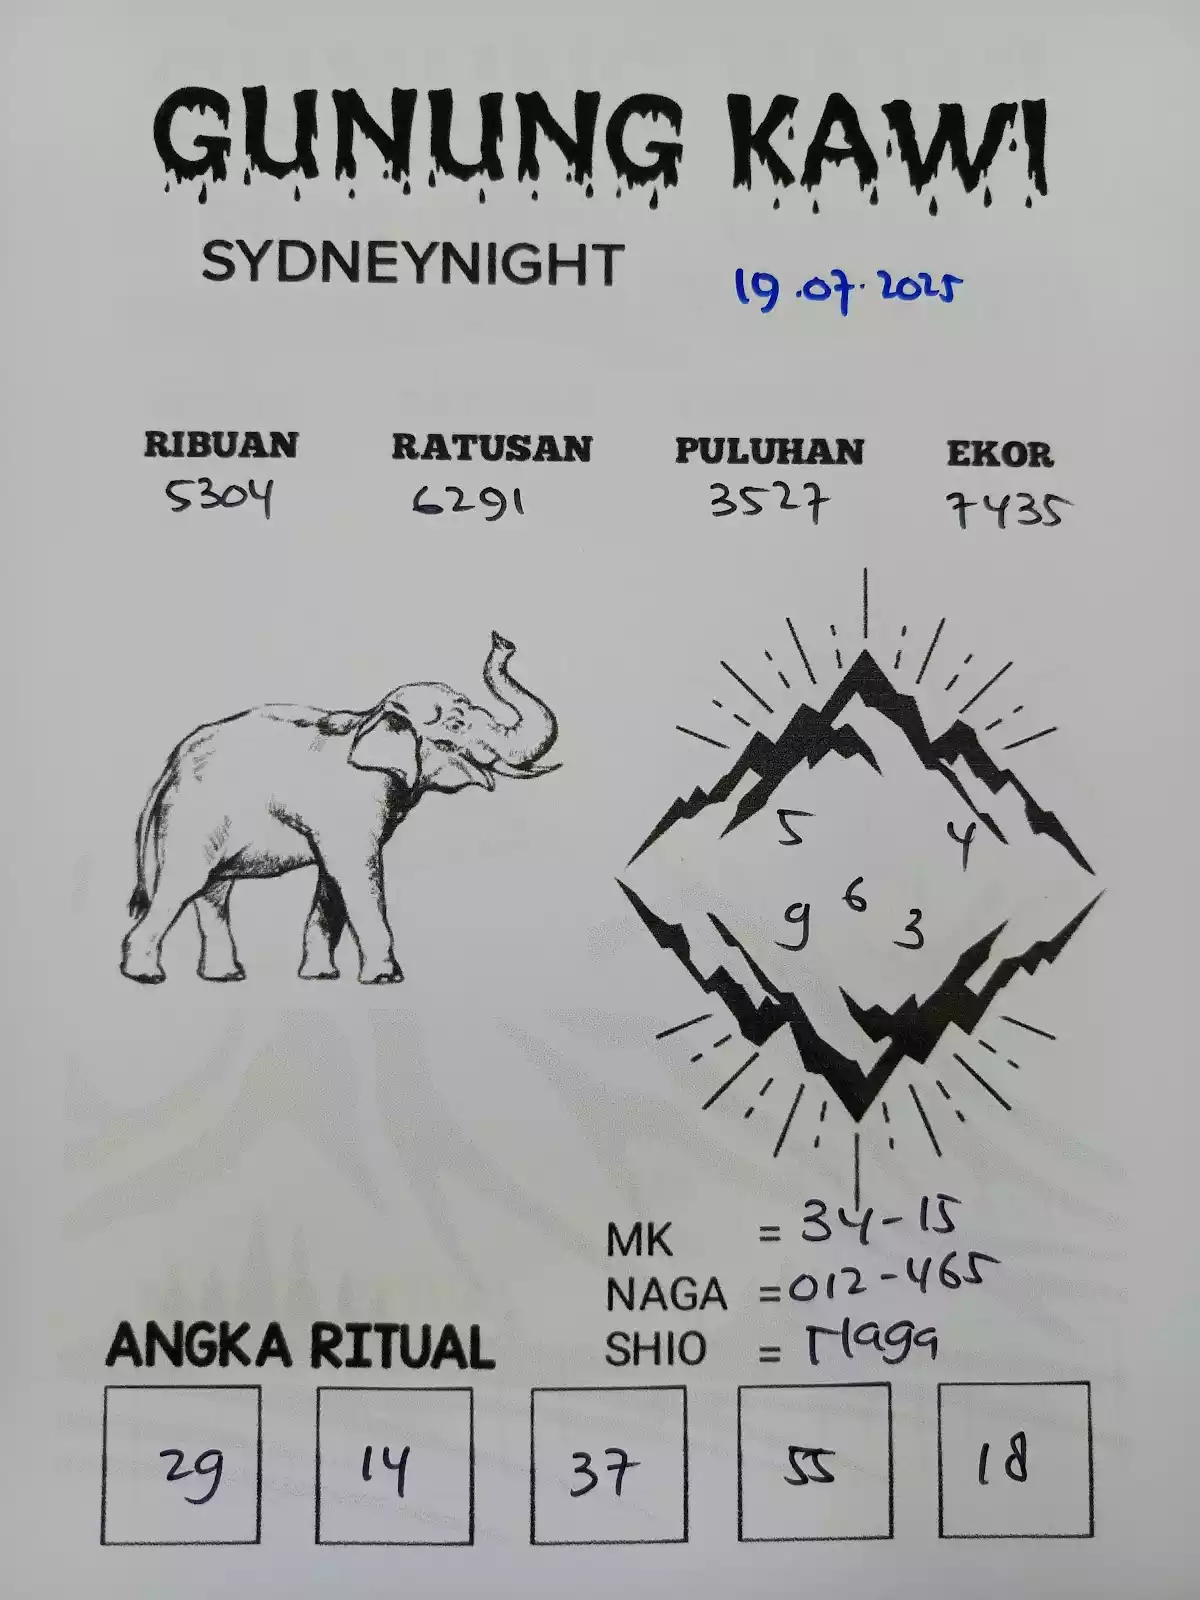 GUNUNG KAWI
SYDNEYNIGHT
19.07.2025
RIBUAN RATUSAN PULUHAN EKOR
5304 6291 3527 7435
5 4
9 6 3
MK = 34-15
NAGA = 012-465
SHIO = Naga
ANGKA RITUAL
29 14 37 55 18